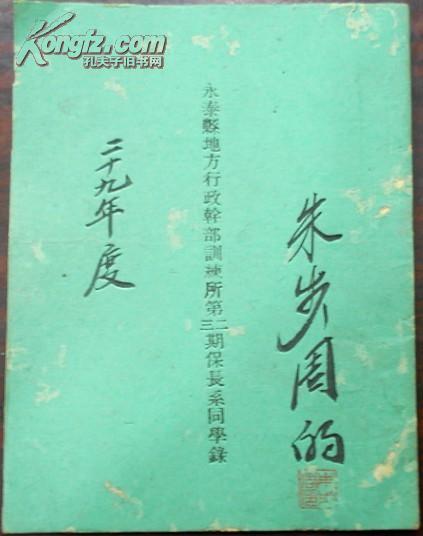 Kongfz.com
孔夫子旧书网
朱步周的
永泰縣地方行政幹部訓練所第二三期保長系同學錄
二十九年度